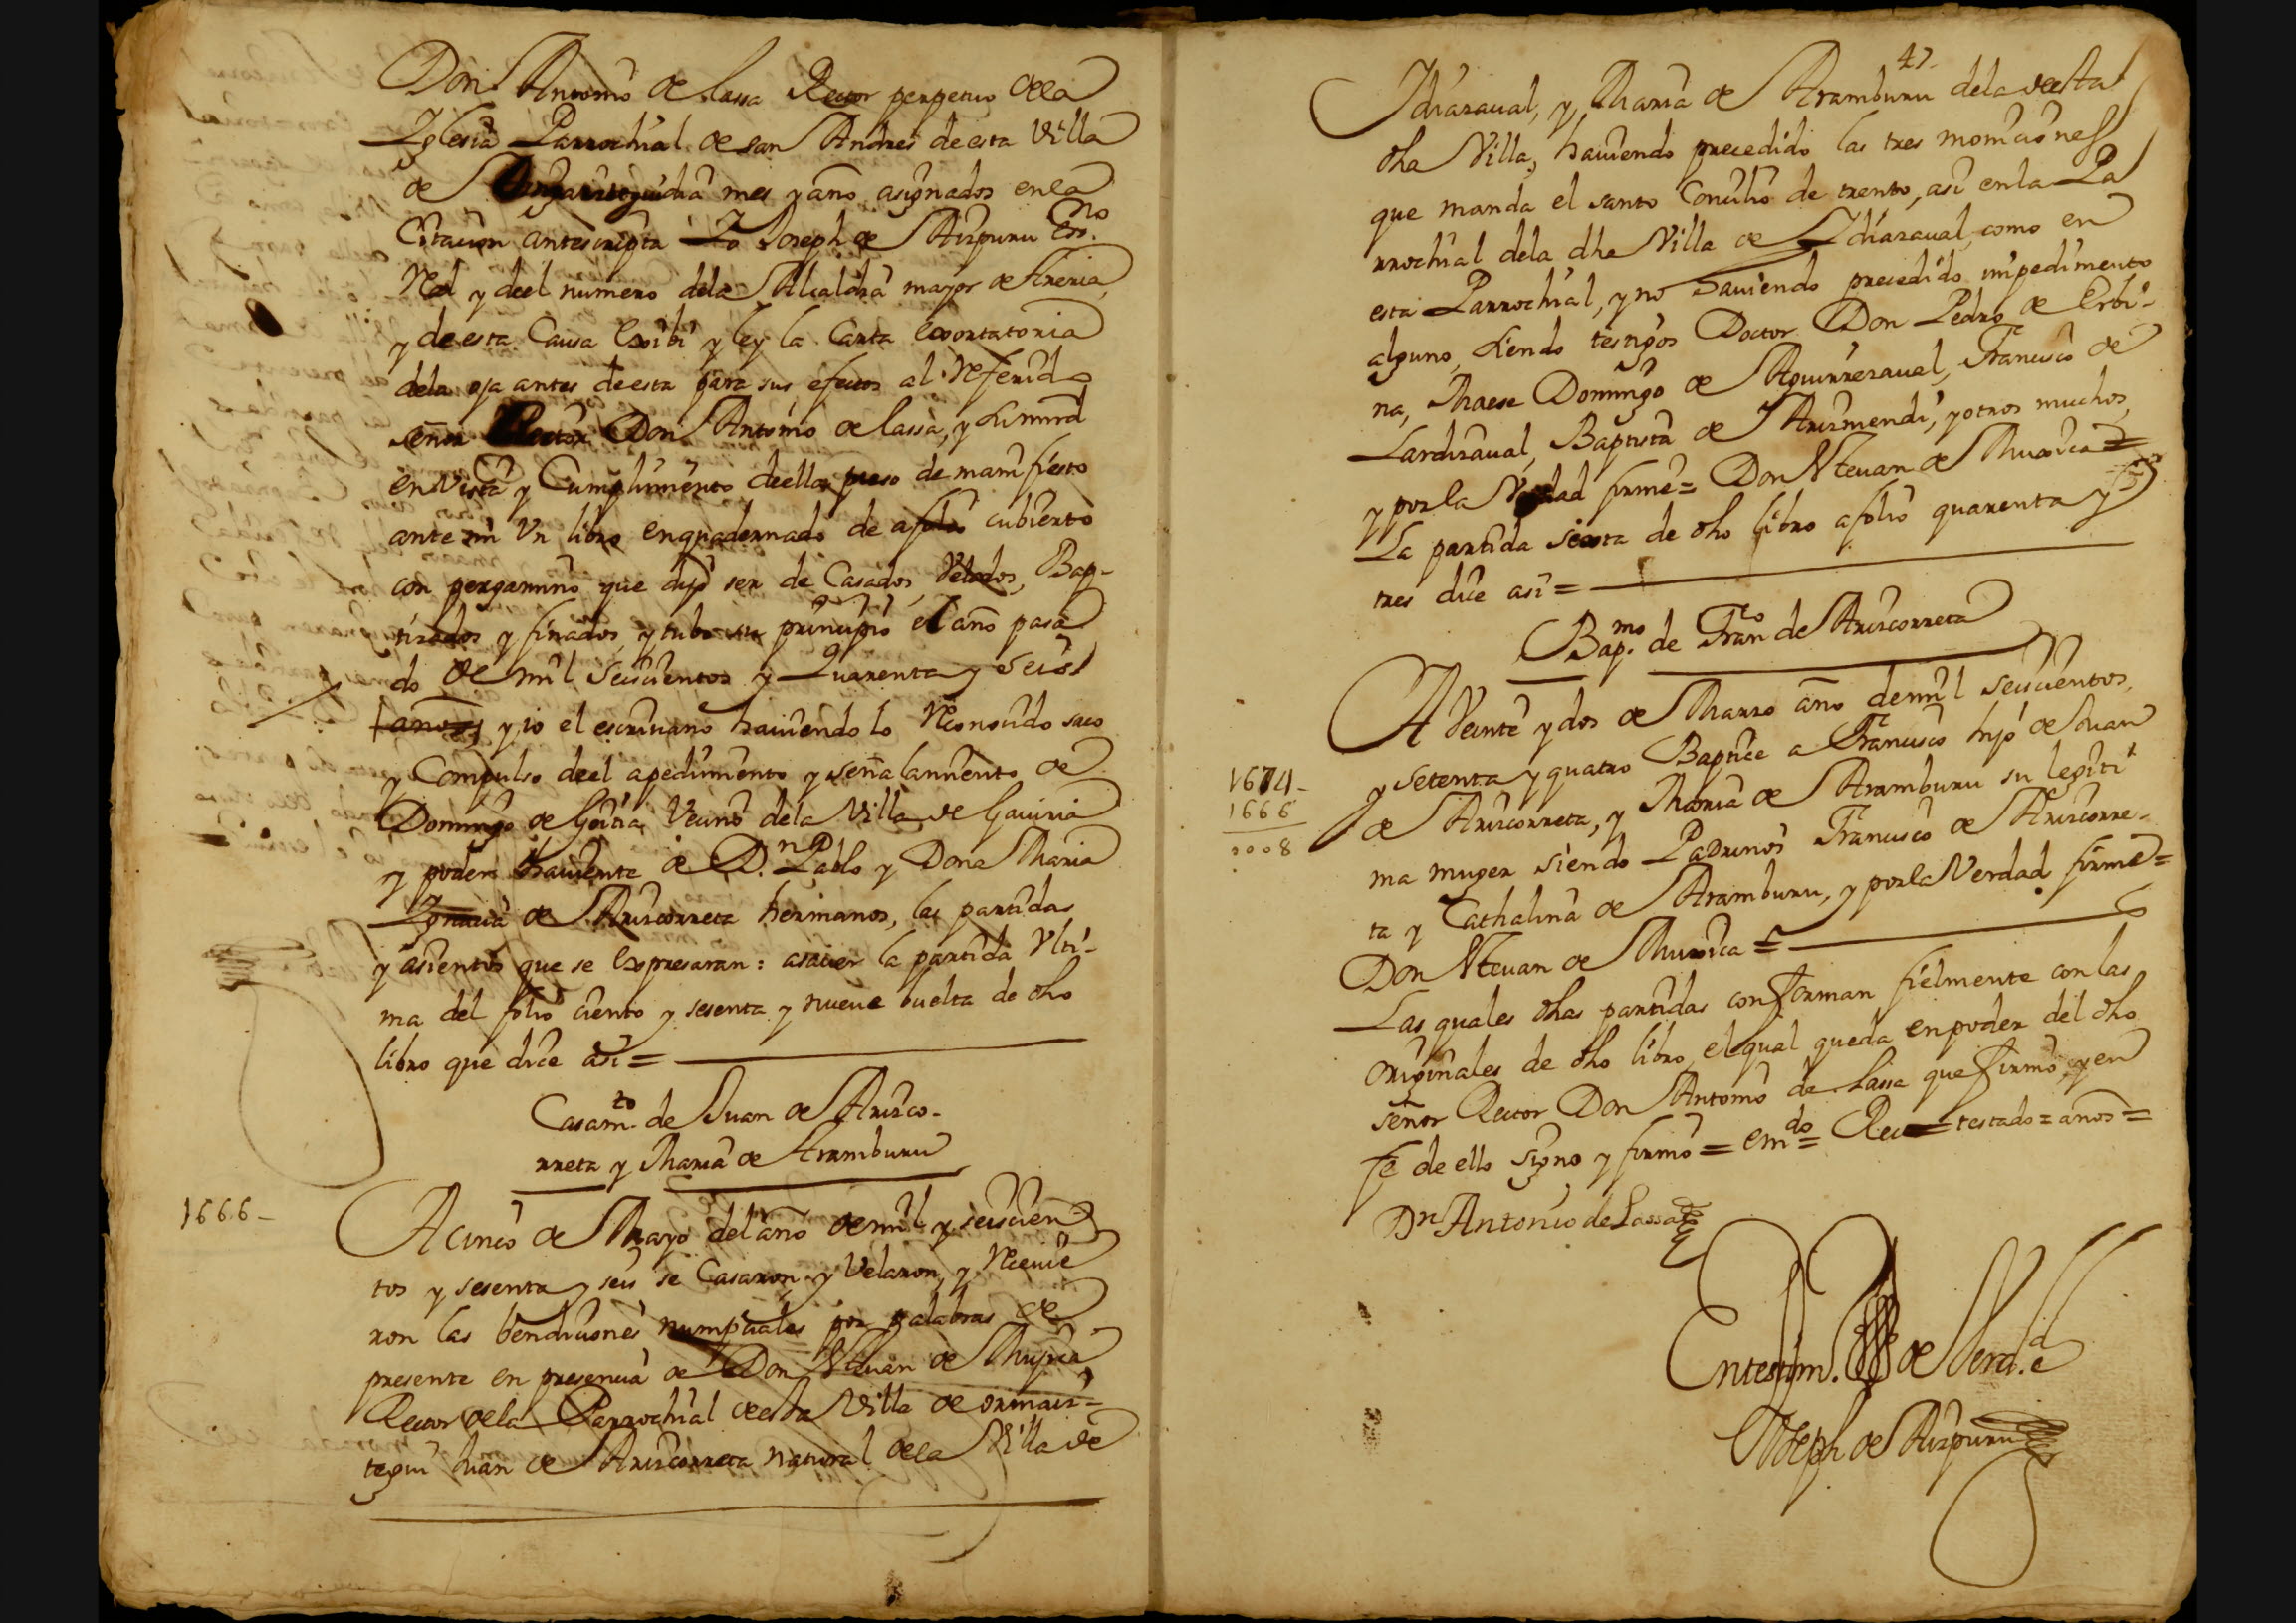 Don Antonio de Lassa Rector perpetuo dela
Yglesia Parrochial de san Andres de esta Villa
de dia mes y año asignados en la
Citacion antescripta Yo Joseph de Aizpuru Essno.
Real y deel numero dela Alcaldia mayor de Areria,
y de esta Causa exibi y ley la Carta exortatoria
dela oja antes de esta para sus efectos al Referido
señor Rector Don Antonio de lassa, y su mrd
en vista y Cumplimiento de ella puso de manifiesto
ante mi Vn libro enquadernado de a folio cubierto
con pergamino que dijo ser de Casados, Velados, Bap-
tizados y finados, y tubo su principio el año pasa
do de mil seiscientos y Quarenta y seis
años y io el escriuano hauiendo lo Reconocido saco
y Compulso deel a pedimiento y señalamiento de
Domingo de Goitia Vecino dela Villa de Gauiria
y poder hauiente de Dn. Pablo y Dona Maria
Ygnacia de Arizcorreta hermanos, las partidas
y asientos que se expresaran: asauer la partida Vlti-
ma del folio ciento y sesenta y nueue buelta de dho
libro que dice asi =
Casamto. de Juan de Arizco-
rreta y Maria de Aramburu
1666-
A cinco de Mayo del año de mil y seiscien
tos y sesenta y seis se Casaron y Velaron, y Reciuie
ron las bendiciones numpciales por palabras de
presente en presencia de Don Esteuan de Muxica
Rector dela Parrochial de esta Villa de ormaiz-
tegui Juan de Arizcorreta natural dela Villa de
47-
Idiazaual, y Maria de Aramburu dela de esta
dha Villa, hauiendo precedido las tres moniciones
que manda el santo Concilio de trento, asi en la Pa
rrochial dela dha Villa de Idiazaual, como en
esta Parrochial, y no hauiendo precedido impedimento
alguno, siendo testigos Doctor Don Pedro de Erbi-
na, Maese Domingo de Aguirrezaual, Francisco de
Lardizaual, Baptista de Arizmendi, y otros muchos,
y por la Verdad firmé = Don Esteuan de Muxica =
La partida sexta de dho libro a folio quarenta y
tres dice asi =
Bapmo. de Franco de Arizcorreta
A Veinte y dos de Marzo año de mil seiscientos,
y setenta y quatro Baptice a Francisco hijo de Juan
1674-
1666
0008
de Arizcorreta, y Maria de Aramburu su legiti
ma muger siendo Padrinos Francisco de Arizcorre-
ta y Cathalina de Aramburu, y por la Verdad firmé =
Don Esteuan de Muxica =
Las quales dhas partidas conforman fielmente con las
originales de dho libro, el qual queda en poder del dho
señor Rector Don Antonio de Lassa que firmó, y en
fe de ello signo y firmo = emdo = Rec = testado = años =
Dn Antonio de Lassa
En testim. de Verd.d
Joseph de Aizpuru